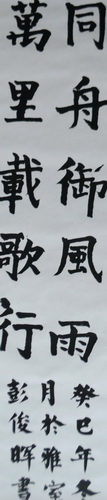 同舟御風雨
萬里載歌行
癸巳年冬
月於雅室
彭俊暉書